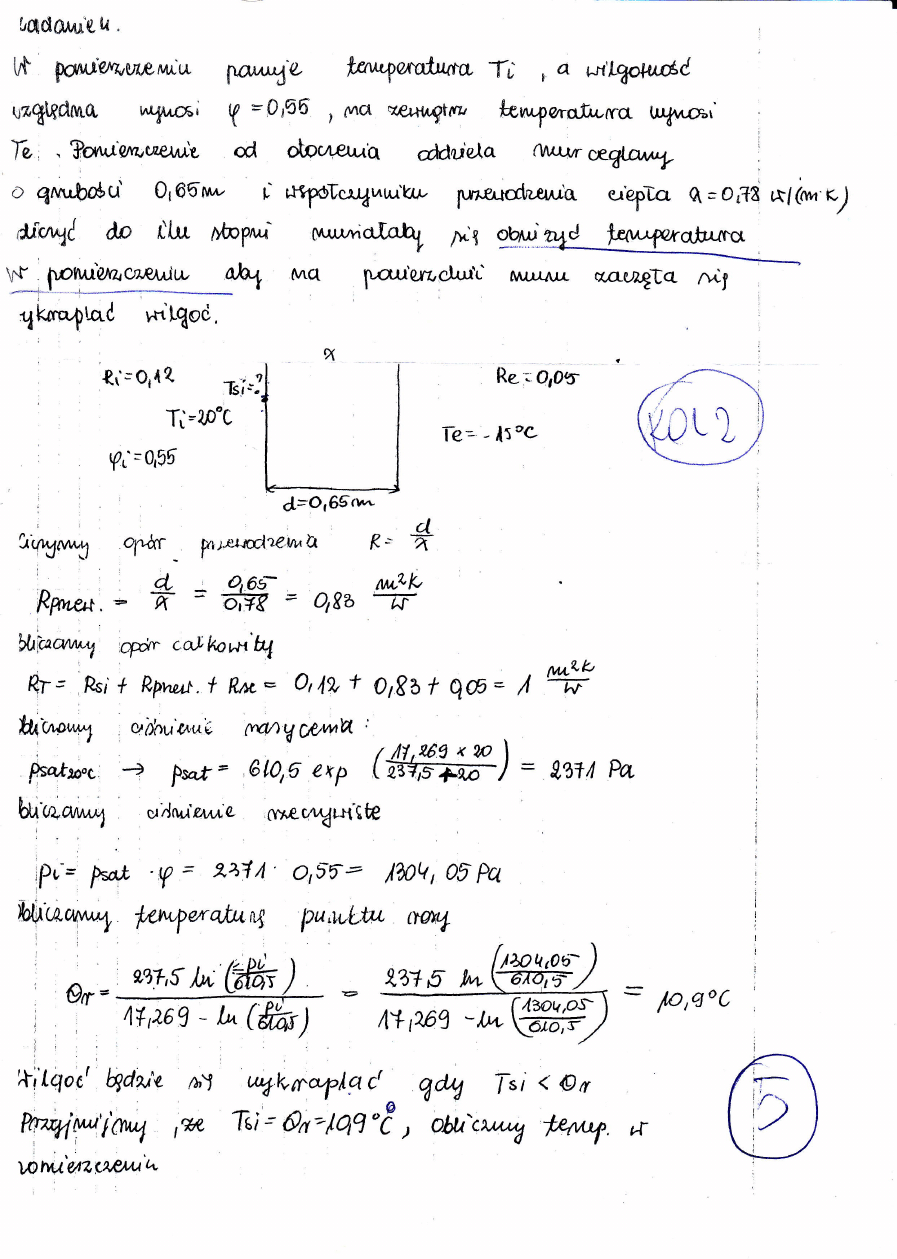 Zadanie 4.
W pomieszczeniu panuje temperatura Ti , a wilgotność
względna wynosi φ = 0,55 , na zewnątrz temperatura wynosi
Te . Pomieszczenie od otoczenia oddziela mur ceglany
o grubości 0,65m i współczynniku przewodzenia ciepła λ=0,78 W/(m·K)
liczyć do ilu stopni musiałaby się obniżyć temperatura
w pomieszczeniu aby na powierzchni muru zaczęła się
ykraplać wilgoć.
λ
Ri=0,12 Tsi=? Re=0,05
Ti=20°C Te=-15°C KOL2
φi=0,55
d=0,65m
liczymy opór przewodzenia R= d/λ
Rprzew. = d/λ = 0,65/0,78 = 0,83 m²K/W
bliczamy opór całkowity
RT = Rsi + Rprzew. + Rse = 0,12 + 0,83 + 0,05 = 1 m²K/W
bliczamy ciśnienie nasycenia :
psat20°C → psat = 610,5 exp (17,269 × 20 / 237,5 + 20) = 2371 Pa
bliczamy ciśnienie rzeczywiste
pi = psat · φ = 2371 · 0,55 = 1304,05 Pa
bliczamy temperaturę punktu rosy
Θr = 237,5 ln (pi/610,5) / 17,269 - ln (pi/610,5) = 237,5 ln (1304,05/610,5) / 17,269 - ln (1304,05/610,5) = 10,9°C
ilgoć będzie się wykraplać gdy Tsi < Θr
Przyjmujmy , że Tsi = Θr = 10,9°C , obliczmy temp. w
pomieszczeniu
5